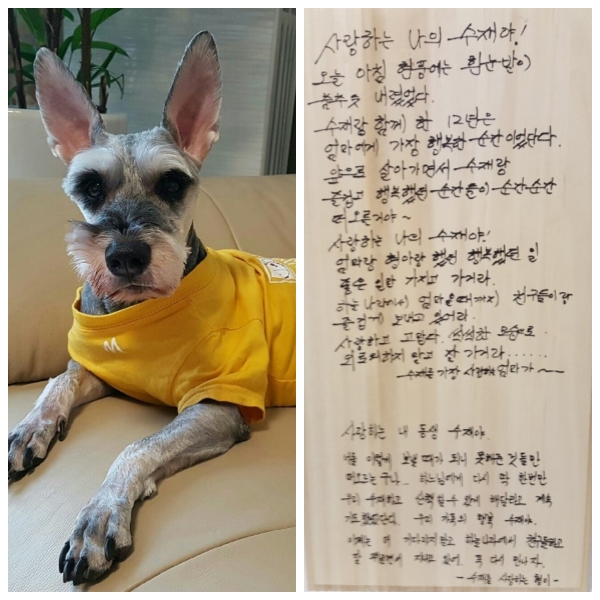 사랑하는 나의 수재야!
오늘 아침 창문에는 흰눈발이
흩추듯 내렸었다.
수재랑 함께 한 12년은
엄마에게 가장 행복한 순간이었단다.
앞으로 살아가면서 수재랑
즐겁고 행복했던 순간들이 순간순간
떠오를거야~
사랑하는 나의 수재야!
엄마랑 형아랑 했던 행복했던 일
좋은 일만 가지고 가거라.
하늘나라에서 엄마 올때까지 친구들이랑
즐겁게 보내고 있어라.
사랑하고 고맙다. 씩씩한 모습으로
외로워하지 말고 잘 가거라......
-수재를 가장 사랑하는 엄마가~~
사랑하는 내 동생 수재야.
너를 이렇게 보낼 때가 되니 못해준 것들만
떠오르는구나... 하느님에게 다시 딱 한번만
우리 수재하고 산책할 수 있게 해달라고 계속
기도했었단다. 우리 가족의 행복 수재야.
이제는 더 기다리지말고 하늘나라에서 친구들하고
잘 지내고 있어. 꼭 다시 만나자.
- 수재를 사랑하는 형이 -